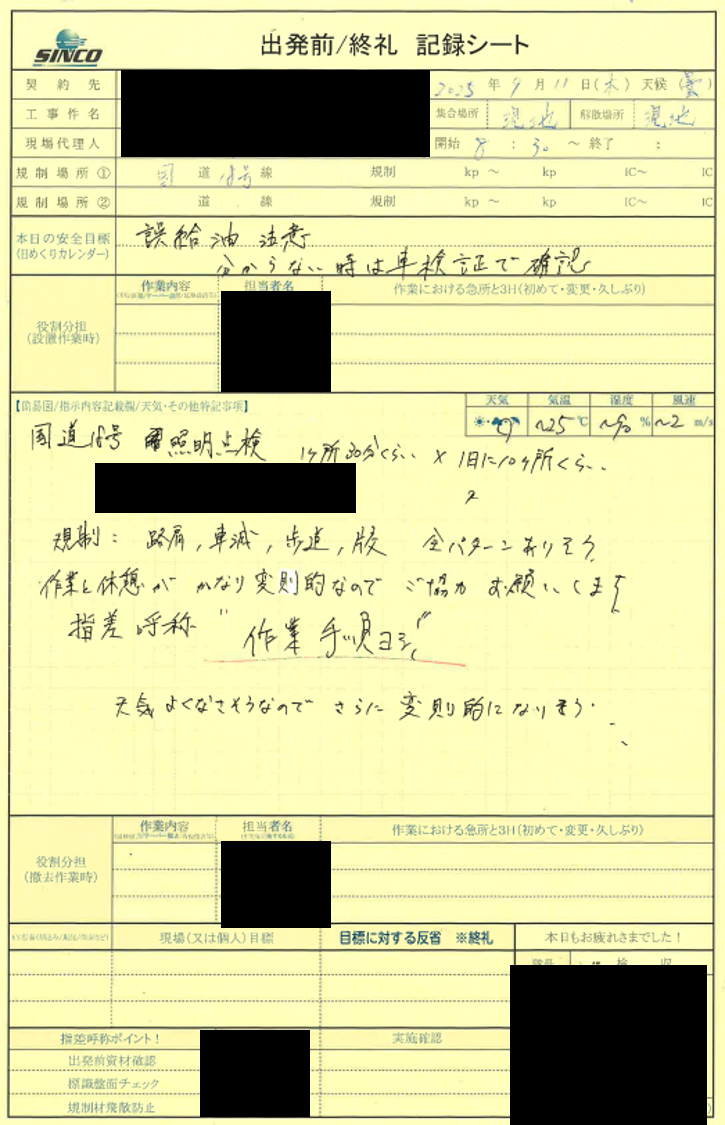 SINCO
出発前/終礼 記録シート
契約先
2025 年 9 月 11 日(木) 天候(曇)
工事件名
集合場所 現地 解散場所 現地
現場代理人
開始 8 : 30 ~ 終了 :
規制場所① 国 道 18号 線 規制 kp ~ kp IC~ IC
規制場所② 道 線 規制 kp ~ kp IC~ IC
本日の安全目標
(日めくりカレンダー)
誤給油 注意
分からない時は車検証で確認
作業内容 担当者名 作業における急所と3H(初めて・変更・久しぶり)
役割分担
(設置作業時)
【簡易図/指示内容記載欄/天気・その他特記事項】
天気 気温 湿度 風速
~25 ℃ ~90 % ~2 m/s
国道18号 照明点検 1ヶ所30分くらい × 1日に10ヶ所くらい
規制: 路肩, 車減, 歩道, 版 全パターンありそう
作業と休憩が かなり変則的なので ご協力 お願いします
指差呼称 "作業手順ヨシ!"
天気よくなさそうなので さらに 変則的になりそう・
作業内容 担当者名 作業における急所と3H(初めて・変更・久しぶり)
役割分担
(撤去作業時)
現場(又は個人)目標 目標に対する反省 ※終礼 本日もお疲れさまでした!
検 収
指差呼称ポイント! 実施確認
出発前資材確認
標識盤面チェック
規制材飛散防止